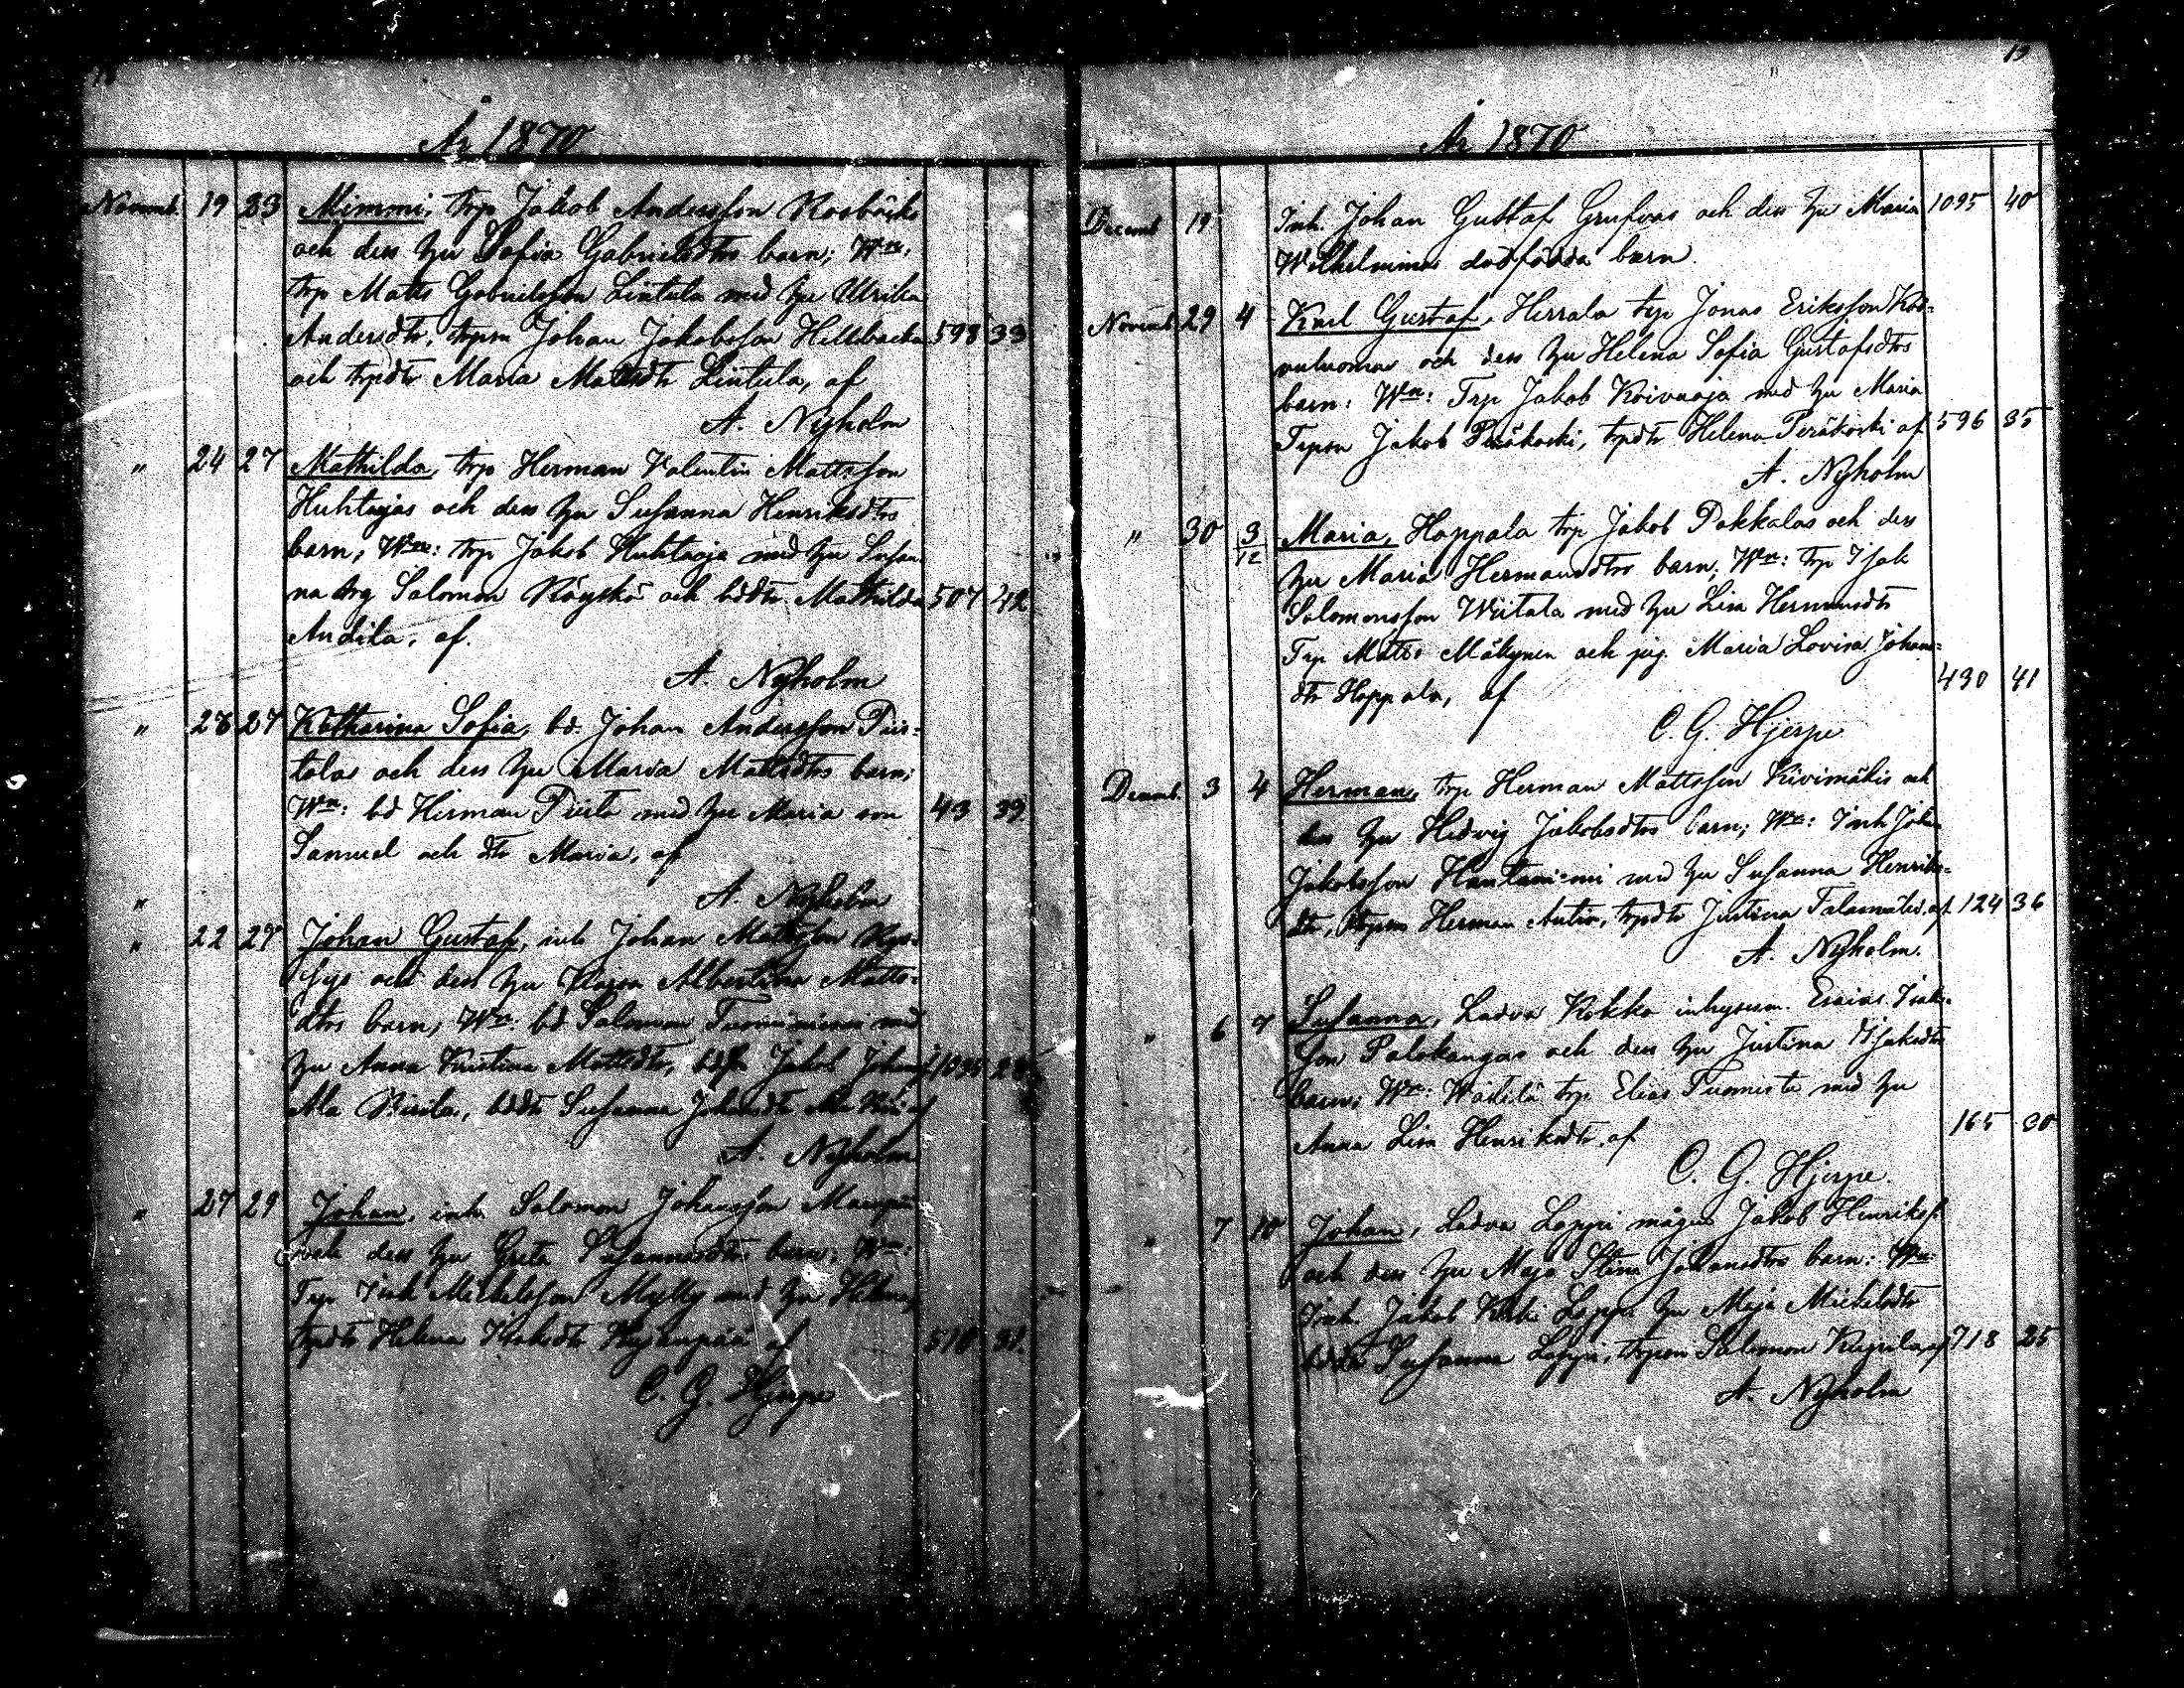 18
År 1870
Novemb. 19 23 Mimmi, trp Jakob Andersson Rosbäcks
och dess hu Sofia Gabrielsdtrs barn; Wn:
trp Matts Gabrielsson Lintula med hu Ulrika
Andersdtr, trpsn Johan Jakobsson Hillbacka 598 33
och trpdtr Maria Mattsdtr Lintula, af
A. Nyholm
" 24 27 Mathilda, trp Herman Valentin Mattsson
Huhtajas och dess hu Susanna Henriksdtrs
barn; Wn: trp Jakob Huhtaoja med hu Susan-
na trp Salomon Köykkö och bddtr Mathilda 507 42
Andila, af.
A. Nyholm
" 26 27 Katharina Sofia, bd. Johan Andersson Piir-
tolas och dess hu Maria Mattsdtrs barn;
Wn: bd Herman Piirto med hu Maria son 43 39
Samuel och dtr Maria, af
A. Nyholm
"
" 22 27 Johan Gustaf, inh Johan Mattsson
och dess hu Albertina Matts-
dtrs barn; Wn: bd Salomon Tuominiemi med
hu Anna Kristina Mattsdtr, Jakob 1095 28
Ala bddtr Susanna af
A. Nyholm
" 27 29 Johan, inh. Salomon Johansson
och dess hu Greta barn; Wn:
Trp Isak Mickelsson Mylly med hu Helena,
trpdtr Helena Isaksdtr af 510 31.
C. G. Hjerpe
19
År 1870
Decemb 19 Inh. Johan Gustaf Grufvas och dess hu Maria 1095 40
Wilhelminas dödfödda barn.
Novemb. 29 4 Karl Gustaf, Herrala trp Jonas Eriksson
och dess hu Helena Sofia Gustafsdtrs
barn: Wn: Trp Jakob Koivuoja med hu Maria
Trpsn Jakob Peräkoski, trpdtr Helena Peräkoski af 596 35
A. Nyholm
" 30 3/12 Maria, Hoppala trp Jakob Pokkalas och dess
hu Maria Hermansdtrs barn; Wn: trp Isak
Salomonsson Wiitala med hu Lisa Hermansdtr
Trp Matts Mäkynen och pig. Maria Lovisa Johans-
dtr Hoppala, af 430 41
C. G. Hjerpe
Decemb. 3 4 Herman, trp Herman Mattsson Kivimäkis och
dess hu Hedvig Jakobsdtrs barn; Wn: Inh Johan
Jakobsson Hautaniemi med hu Susanna Henriks-
dtr, trpsn Herman Autio, trpdtr Justina Talamäki, af 124 36
A. Nyholm.
" 6 7 Susanna, Ladva Kokko inhysesm. Esaias Isaks-
son Palokangas och dess hu Justina Isaksdtrs
barn; Wn: Wäätilä trp Elias Tuomisto med hu
Anna Lisa Henriksdtr. af 165 30
C. G. Hjerpe.
" 7 10 Johan, Ladva Loppi mågen Jakob Henrikss.
och dess hu Maja Stina Johansdtrs barn: Wn:
Inh. Jakob Loppi hu Maja Mickelsdtr
bddtr Susanna Loppi, trpson Salomon af 718 25
A. Nyholm